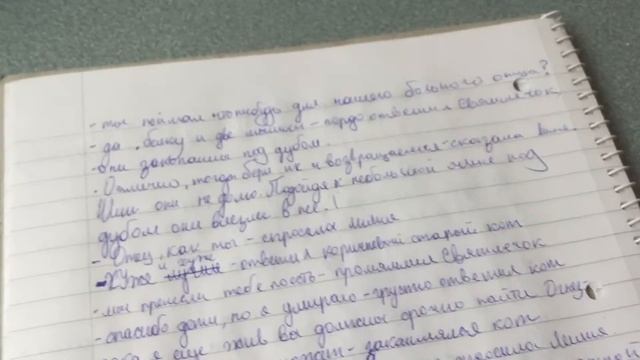 - ты поймал что нибудь для нашего больного отца?
- да, белку и две мышки - гордо ответил Святлячок
- они закопаны под дубом.
- Отлично, тогда бери их и возвращаемся - сказала
Шли они не долго. Подойдя к небольшой яме под
дубом они влезли в неё.
- Отец, как ты - спросила лилия
- Хуже и хуже - ответил коричневый старый кот
- мы принесли тебе поесть - промямлил Святлячок
- спасибо дети, но я умираю - грустно ответил кот
я ещё жив вы должны срочно найти
- закашлялся кот
лилия